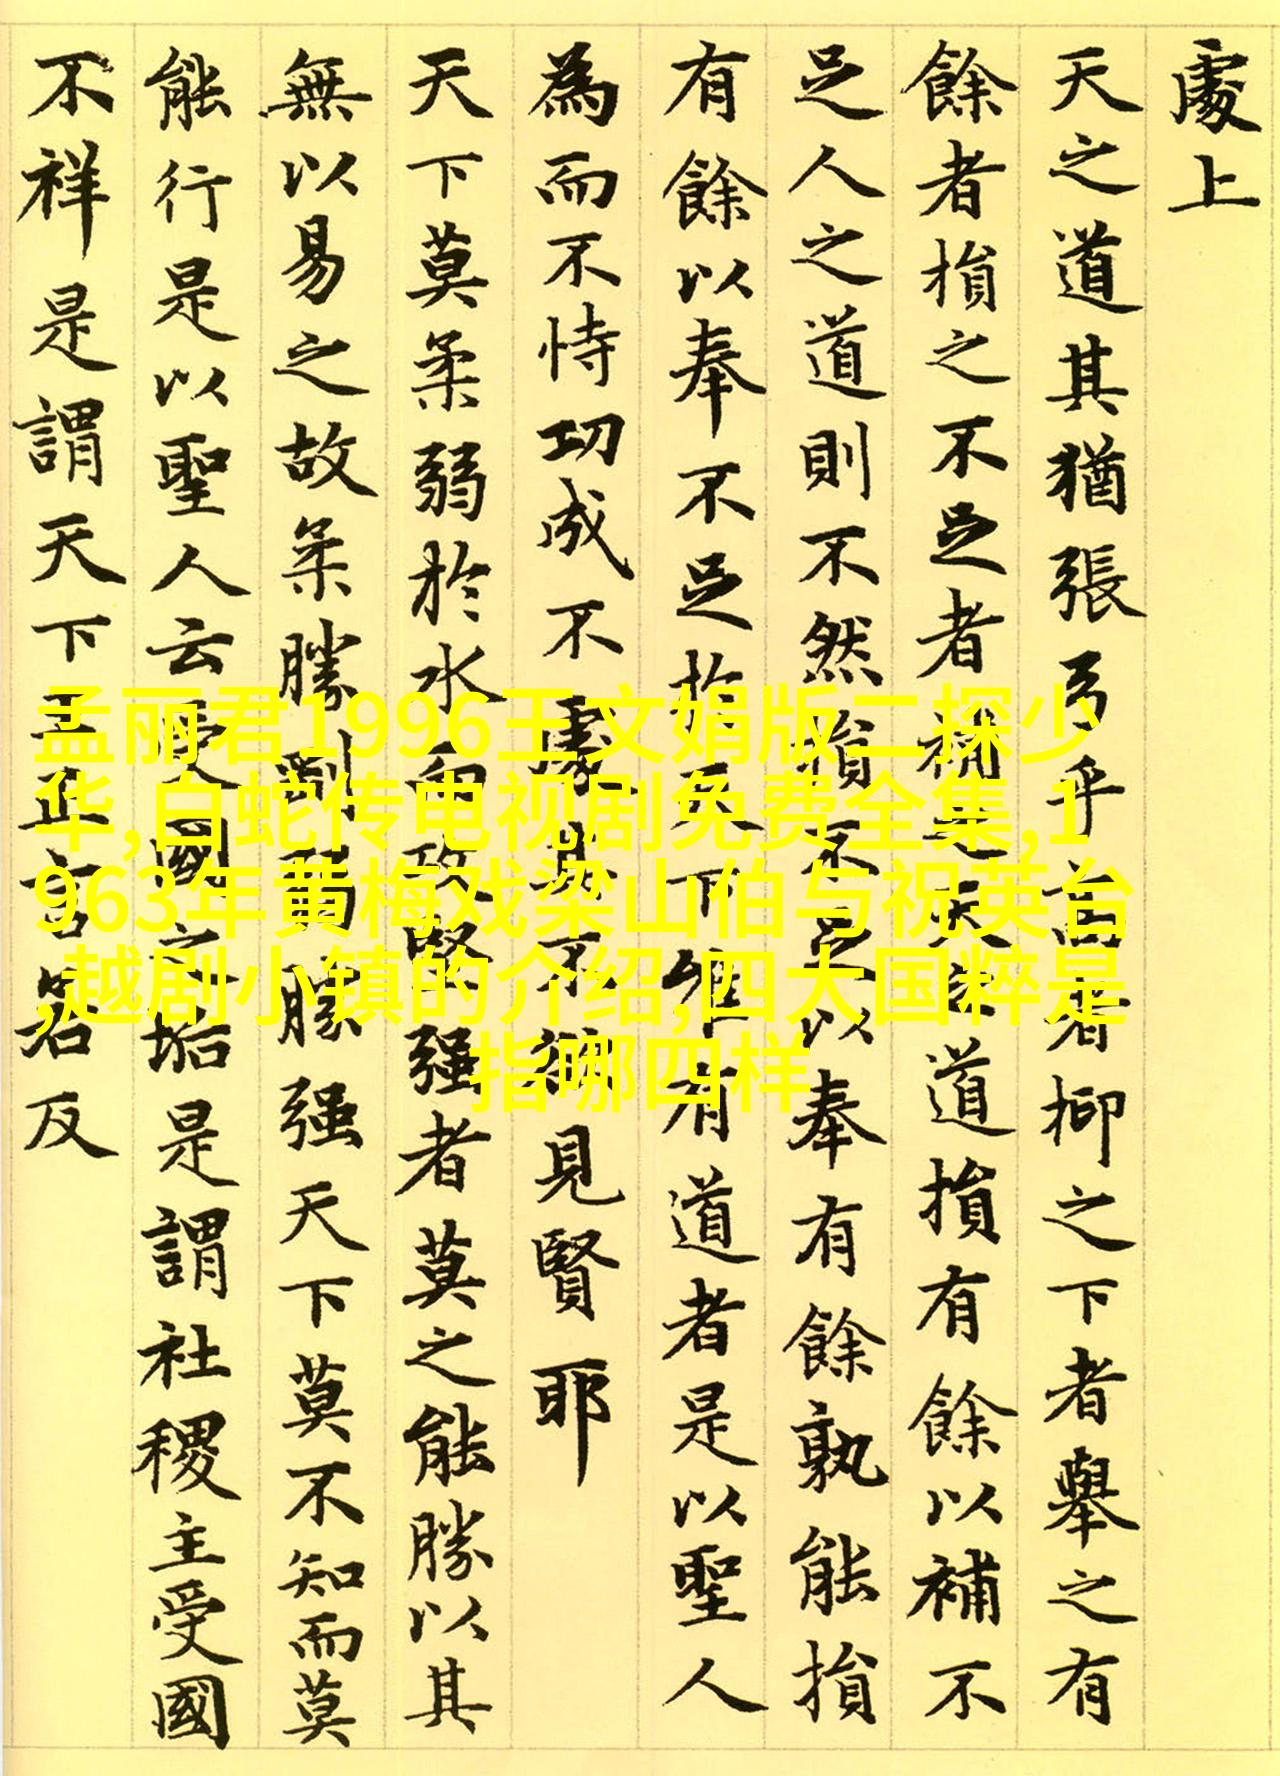 處上
天之道其猶張弓乎高者抑之下者舉之有
餘者損之不足者補之天之道損有餘以補不
足人之道則不然損不足以奉有餘孰能損
有餘以奉不足於天下唯有道者是以聖人
為而不恃功成不處其不欲見賢耶
天下莫柔弱於水而攻堅强者莫之能勝以其
無以易之故柔勝剛弱勝强天下莫不知而莫
能行是以聖人云受國之垢是謂社稷主受國
不祥是謂天下王正言若反
孟丽君1996王文娟版二探少
华,白蛇传电视剧免费全集,1
963年黄梅戏梁山伯与祝英台
,越剧小镇的介绍,四大国粹是
指哪四样